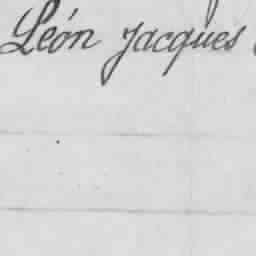 León Jacques